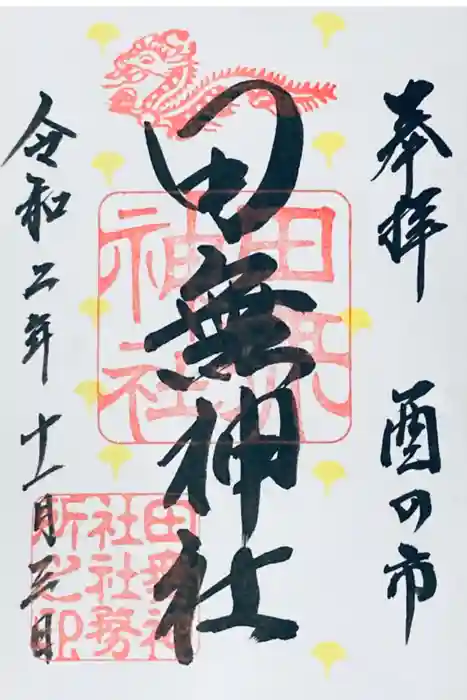 奉拝 酉の市
田無神社
令和二年十一月日
田無
神社
田無神
社社務
所之印